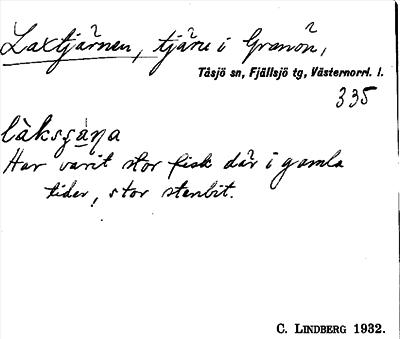 Laxtjärnen, tjärn i Granön,
Tåsjö sn, Fjällsjö tg, Västernorrl. l.
335
làksʒa̠ŋa
Har varit stor fisk där i gamla
tider, stor stenbit.
C. LINDBERG 1932.